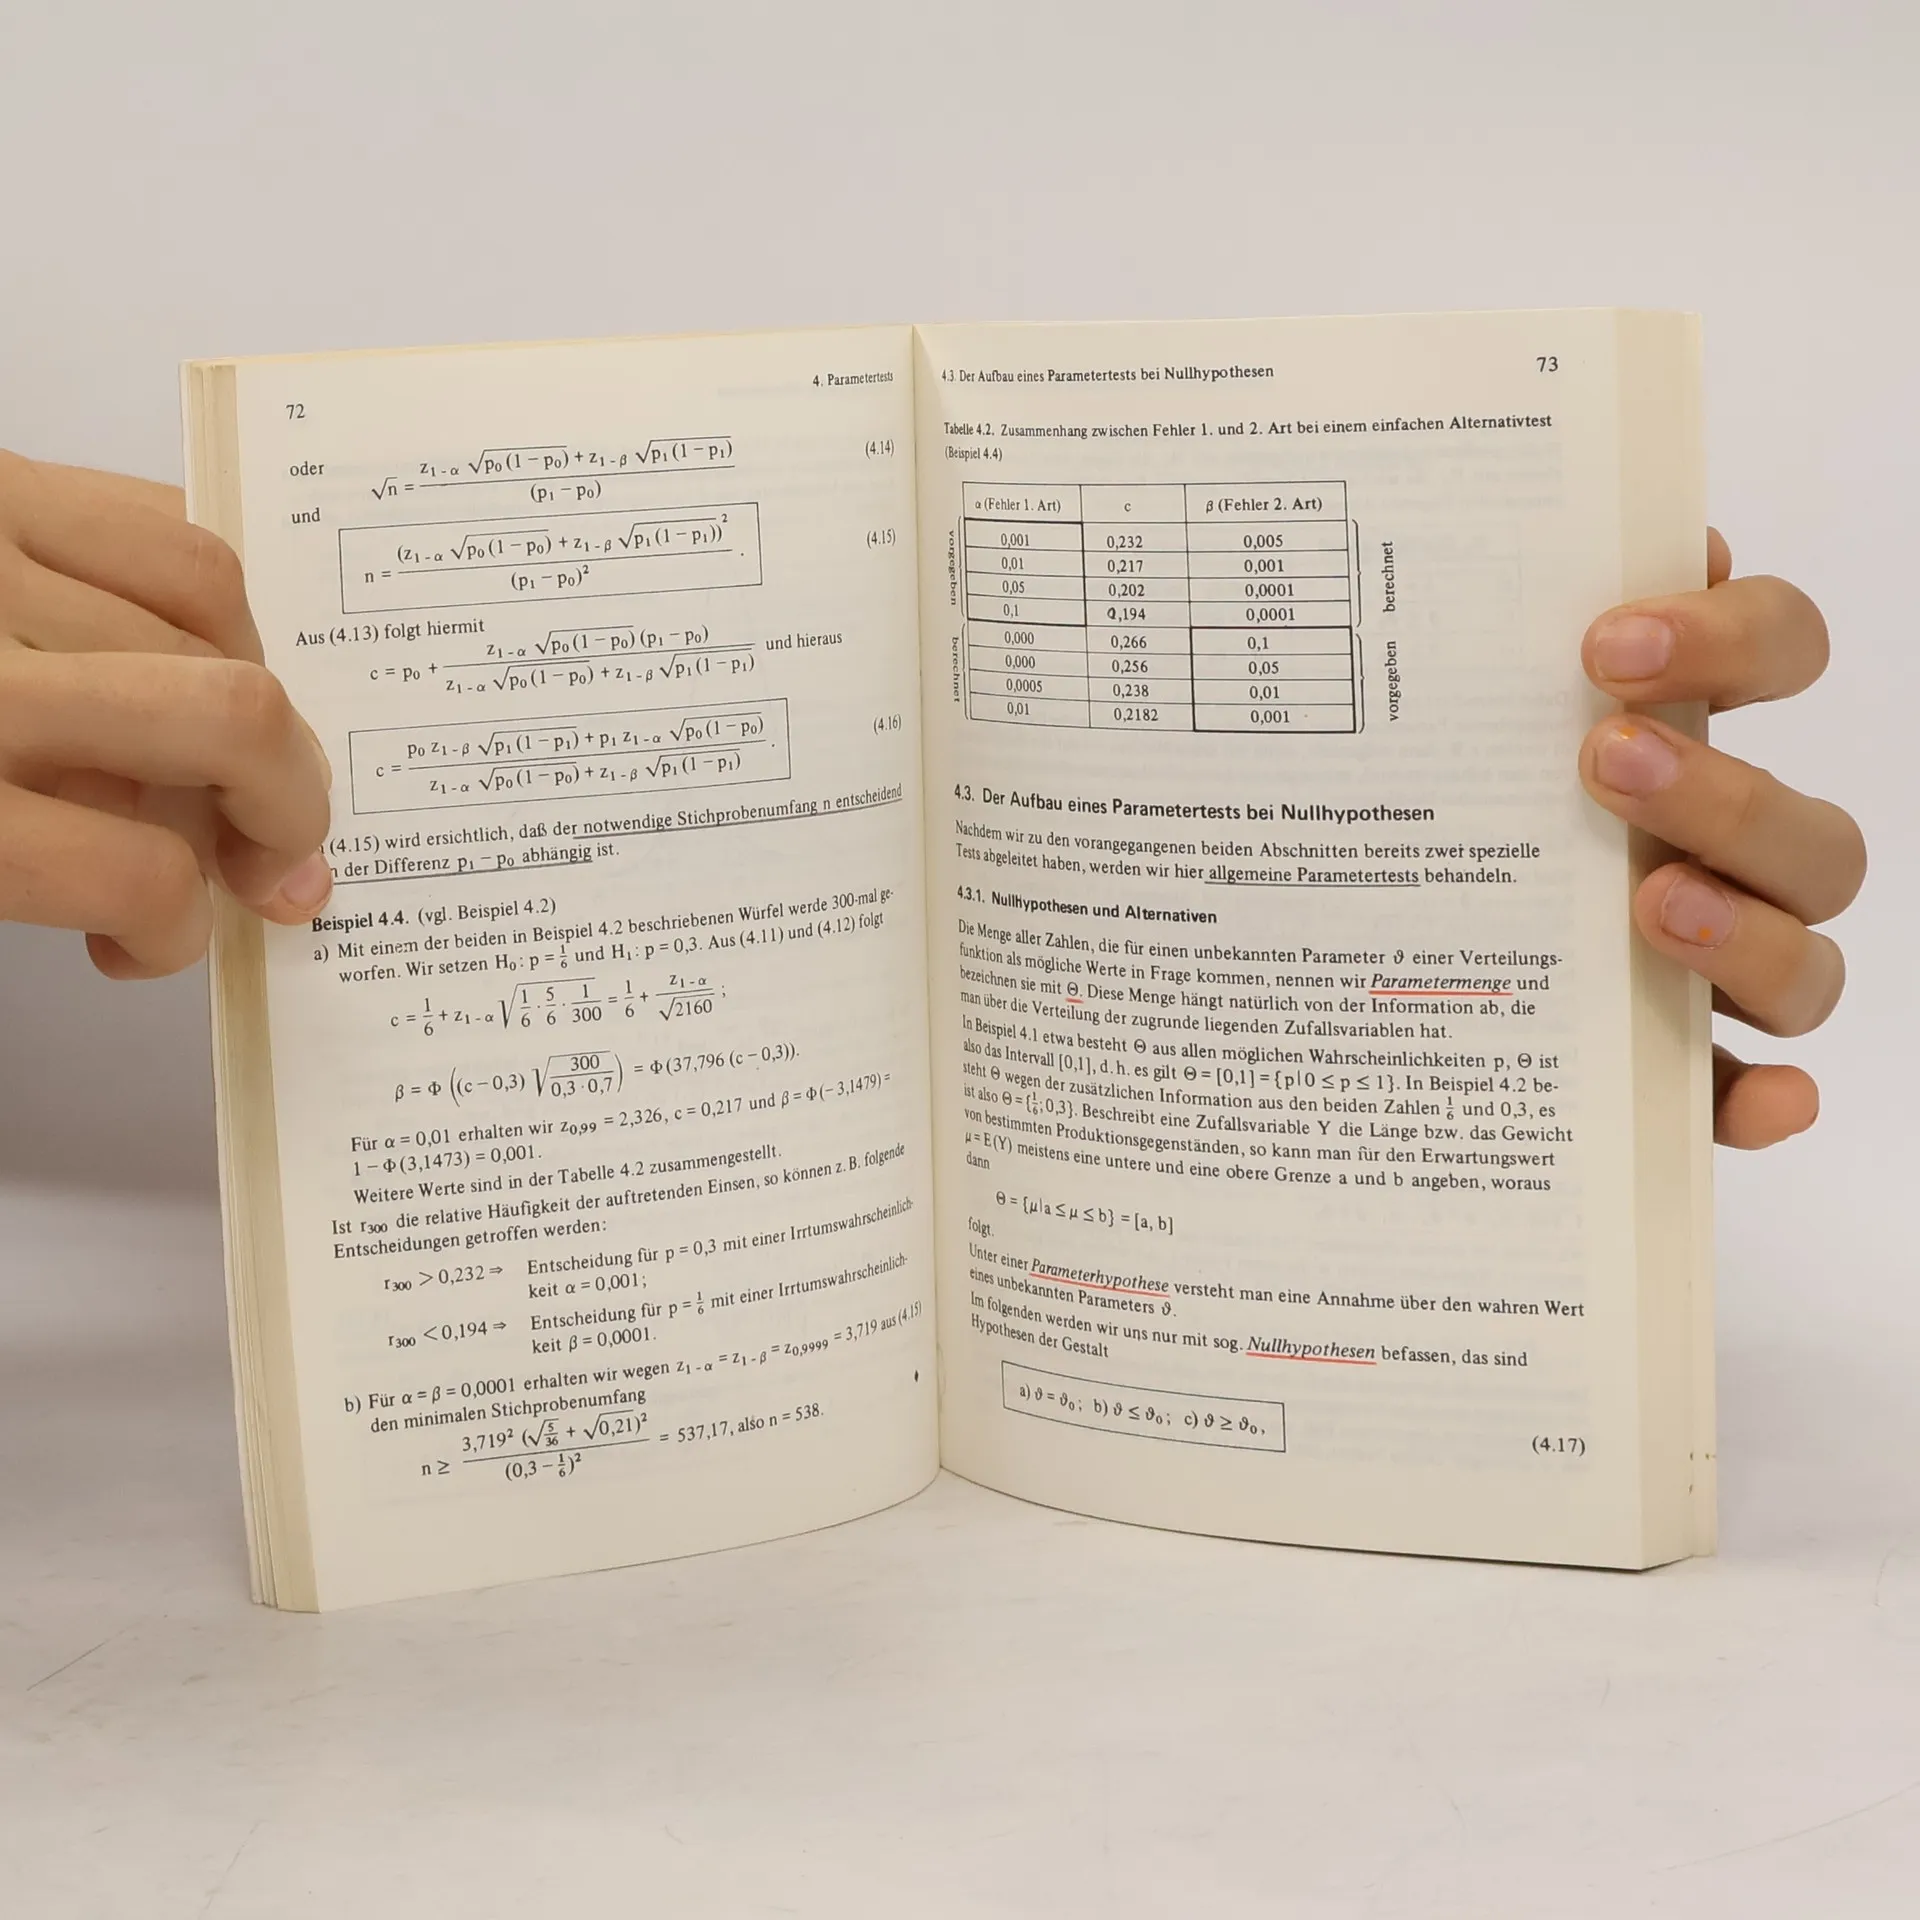 72
4. Parametertests
oder
√n = (z₁₋α √(p₀(1 − p₀)) + z₁₋β √(p₁(1 − p₁))) / (p₁ − p₀) (4.14)
und
n = (z₁₋α √(p₀(1 − p₀)) + z₁₋β √(p₁(1 − p₁)))² / (p₁ − p₀)² . (4.15)
Aus (4.13) folgt hiermit
c = p₀ + z₁₋α √(p₀(1 − p₀)) (p₁ − p₀) / (z₁₋α √(p₀(1 − p₀)) + z₁₋β √(p₁(1 − p₁))) und hieraus
c = (p₀ z₁₋β √(p₁(1 − p₁)) + p₁ z₁₋α √(p₀(1 − p₀))) / (z₁₋α √(p₀(1 − p₀)) + z₁₋β √(p₁(1 − p₁))) . (4.16)
(4.15) wird ersichtlich, daß der notwendige Stichprobenumfang n entscheidend
der Differenz p₁ − p₀ abhängig ist.
Beispiel 4.4. (vgl. Beispiel 4.2)
a) Mit einem der beiden in Beispiel 4.2 beschriebenen Würfel werde 300-mal ge-
worfen. Wir setzen H₀: p = 1/6 und H₁: p = 0,3. Aus (4.11) und (4.12) folgt
c = 1/6 + z₁₋α √(1/6 · 5/6 · 1/300) = 1/6 + z₁₋α / √2160 ;
β = Φ ((c − 0,3) √(300 / (0,3 · 0,7))) = Φ (37,796 (c − 0,3)).
Für α = 0,01 erhalten wir z₀,₉₉ = 2,326, c = 0,217 und β = Φ (− 3,1479) =
1 − Φ (3,1473) = 0,001.
Weitere Werte sind in der Tabelle 4.2 zusammengestellt.
Ist r₃₀₀ die relative Häufigkeit der auftretenden Einsen, so können z. B. folgende
Entscheidungen getroffen werden:
r₃₀₀ > 0,232 ⇒ Entscheidung für p = 0,3 mit einer Irrtumswahrscheinlich-
keit α = 0,001;
r₃₀₀ < 0,194 ⇒ Entscheidung für p = 1/6 mit einer Irrtumswahrscheinlich-
keit β = 0,0001.
b) Für α = β = 0,0001 erhalten wir wegen z₁₋α = z₁₋β = z₀,₉₉₉₉ = 3,719 aus (4.15)
den minimalen Stichprobenumfang
n ≥ 3,719² (√(5/36) + √0,21)² / (0,3 − 1/6)² = 537,17, also n = 538.
4.3. Der Aufbau eines Parametertests bei Nullhypothesen
73
Tabelle 4.2. Zusammenhang zwischen Fehler 1. und 2. Art bei einem einfachen Alternativtest
(Beispiel 4.4)
α (Fehler 1. Art) c β (Fehler 2. Art)
vorgegeben
0,001 0,232 0,005
0,01 0,217 0,001
0,05 0,202 0,0001
0,1 0,194 0,0001
berechnet
berechnet
0,000 0,266 0,1
0,000 0,256 0,05
0,0005 0,238 0,01
0,01 0,2182 0,001
vorgegeben
4.3. Der Aufbau eines Parametertests bei Nullhypothesen
Nachdem wir zu den vorangegangenen beiden Abschnitten bereits zwei spezielle
Tests abgeleitet haben, werden wir hier allgemeine Parametertests behandeln.
4.3.1. Nullhypothesen und Alternativen
Die Menge aller Zahlen, die für einen unbekannten Parameter ϑ einer Verteilungs-
funktion als mögliche Werte in Frage kommen, nennen wir Parametermenge und
bezeichnen sie mit Θ. Diese Menge hängt natürlich von der Information ab, die
man über die Verteilung der zugrunde liegenden Zufallsvariablen hat.
In Beispiel 4.1 etwa besteht Θ aus allen möglichen Wahrscheinlichkeiten p, Θ ist
also das Intervall [0,1], d. h. es gilt Θ = [0,1] = {p|0 ≤ p ≤ 1}. In Beispiel 4.2 be-
steht Θ wegen der zusätzlichen Information aus den beiden Zahlen 1/6 und 0,3, es
ist also Θ = {1/6; 0,3}. Beschreibt eine Zufallsvariable Y die Länge bzw. das Gewicht
von bestimmten Produktionsgegenständen, so kann man für den Erwartungswert
μ = E(Y) meistens eine untere und eine obere Grenze a und b angeben, woraus
dann
Θ = {μ|a ≤ μ ≤ b} = [a, b]
folgt.
Unter einer Parameterhypothese versteht man eine Annahme über den wahren Wert
eines unbekannten Parameters ϑ.
Im folgenden werden wir uns nur mit sog. Nullhypothesen befassen, das sind
Hypothesen der Gestalt
a) ϑ = ϑ₀; b) ϑ ≤ ϑ₀; c) ϑ ≥ ϑ₀,
(4.17)